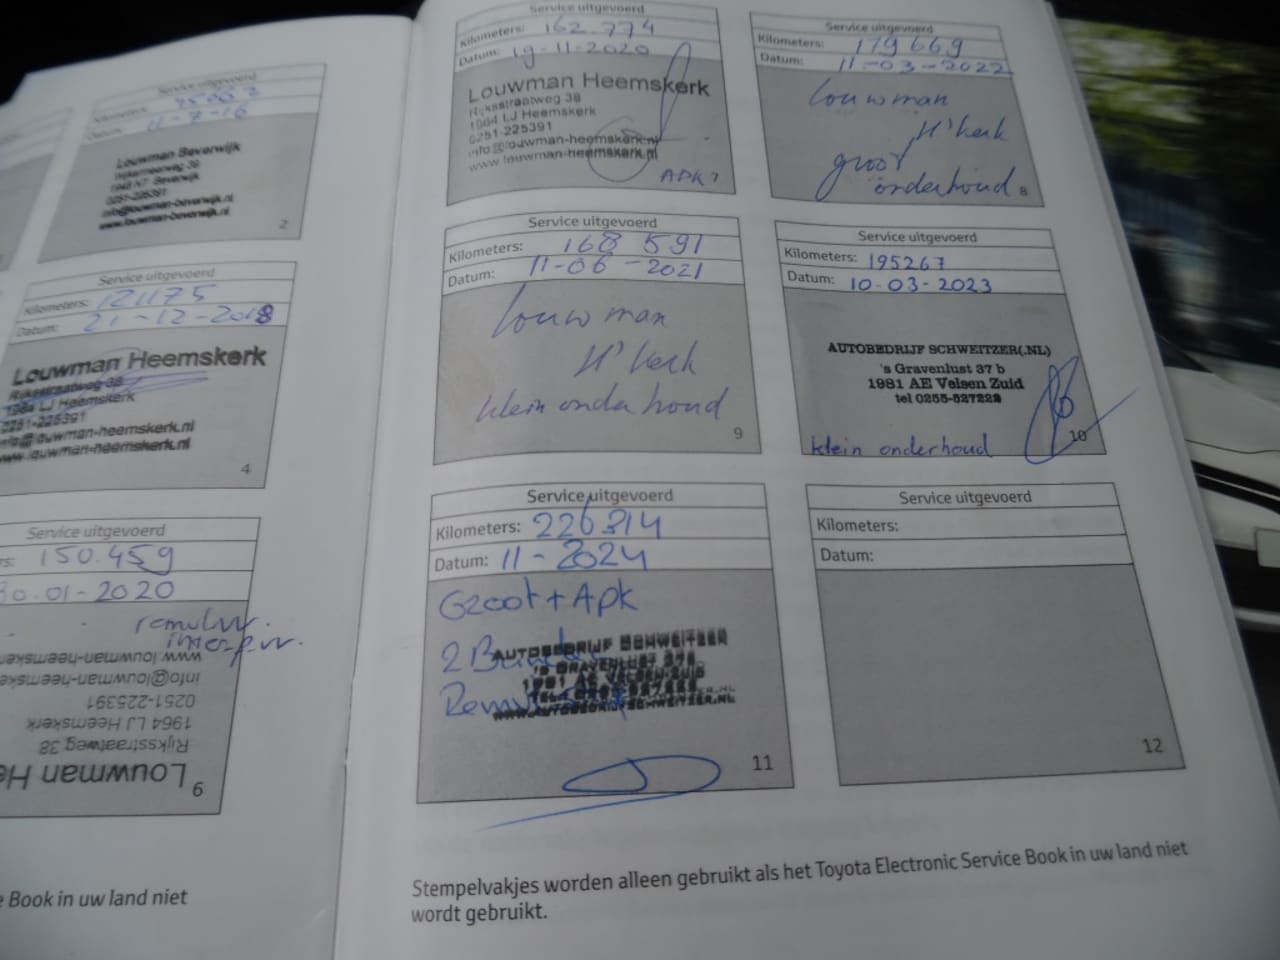 Service uitgevoerd
Kilometers:
Datum: 11-7-16
Louwman Beverwijk
Wijkermeerweg 39
1948 NT Beverwijk
0251-225391
info@louwman-beverwijk.nl
www.louwman-beverwijk.nl
2
Service uitgevoerd
Kilometers: 121175
Datum: 21-12-2018
Louwman Heemskerk
Rijksstraatweg 38
1964 LJ Heemskerk
0251-225391
info@louwman-heemskerk.nl
www.louwman-heemskerk.nl
4
Service uitgevoerd
rs: 150.459
30-01-2020
remvlvr.
www.louwman-heemsker
info@louwman-heemske
0251-225391
1964 LJ Heemskerk
Rijksstraatweg 38
Louwman He
6
e Book in uw land niet
Service uitgevoerd
Kilometers: 162.774
Datum: 19-11-2020
Louwman Heemskerk
Rijksstraatweg 38
1964 LJ Heemskerk
0251-225391
info@louwman-heemskerk.nl
www.louwman-heemskerk.nl
APK 7
Service uitgevoerd
Kilometers: 179669
Datum: 11-03-2022
Louwman
H'kerk
groot
onderhoud 8
Service uitgevoerd
Kilometers: 168 591
Datum: 11-06-2021
Louwman
H'kerk
klein onderhoud
9
Service uitgevoerd
Kilometers: 195267
Datum: 10-03-2023
AUTOBEDRIJF SCHWEITZER(.NL)
's Gravenlust 37 b
1981 AE Velsen Zuid
tel 0255-527222
klein onderhoud
10
Service uitgevoerd
Kilometers: 226314
Datum: 11-2024
Groot + Apk
2
AUTOBEDRIJF SCHWEITZER
'S GRAVENLUST 37B
1981 AE VELSEN-ZUID
WWW.AUTOBEDRIJFSCHWEITZER.NL
11
Service uitgevoerd
Kilometers:
Datum:
12
Stempelvakjes worden alleen gebruikt als het Toyota Electronic Service Book in uw land niet
wordt gebruikt.